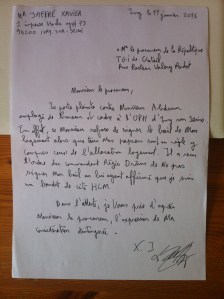 Mr JAFFRÉ XAVIER
2 impasse
94200 IVRY-SUR-SEINE
Ivry, le 11 janvier 2016
à Mr le procureur de la République
T.G.I de Créteil
Rue Pasteur Valléry Radot
Monsieur le procureur,
Je porte plainte contre Monsieur
employé de bureau et cadre à l'OPH d'Ivry sur Seine
En effet, ce Monsieur refuse de signer le bail de mon
logement alors que tous mes papiers sont en règle y
compris ceux de l'allocation logement. Il a reçu
l'ordre du commandant Régis de ne pas
signer mon bail un agent affirmant que je suis
un bandit de cité HLM
Dans l'attente, je vous prie d'agréer
Monsieur le procureur, l'expression de ma
considération distinguée.
X. J